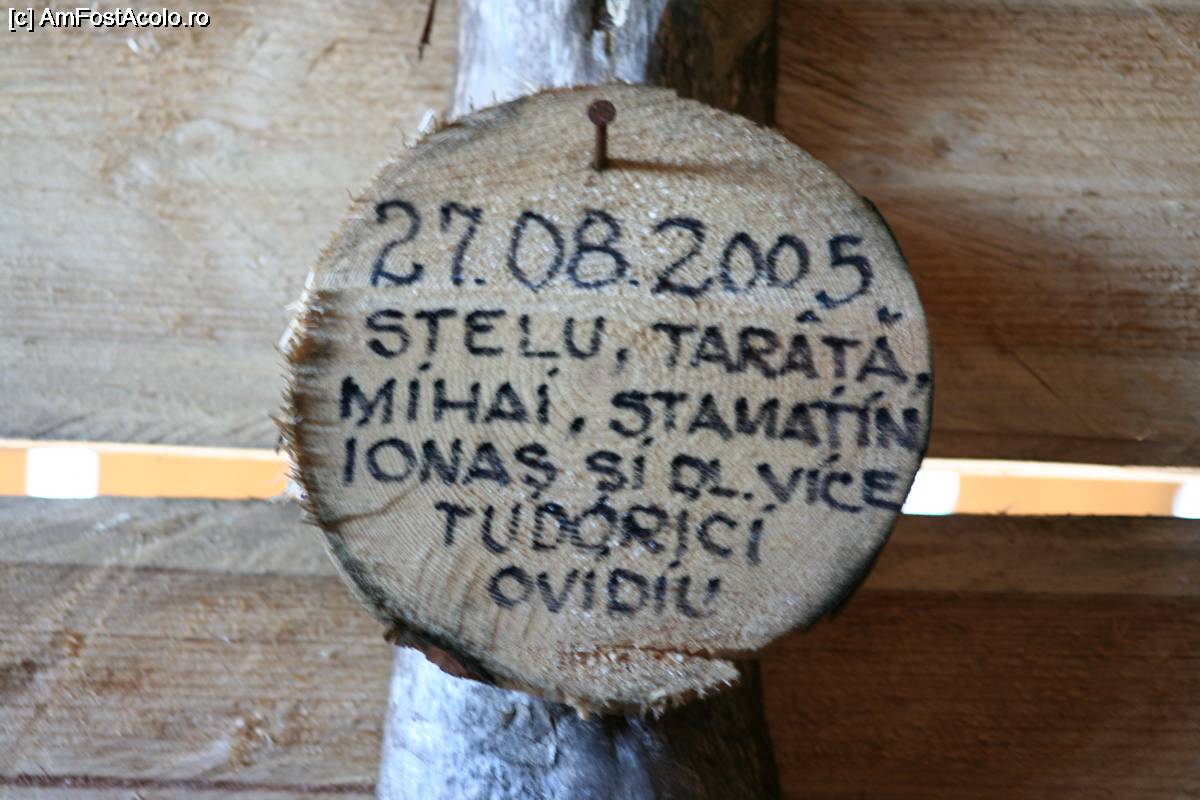 [c] AmFostAcolo.ro
27.08.2005
STELU, TARÂŢĂ,
MİHAİ, STAMAŢİN
IONAŞ ŞI DL. VİCE
TUDORICİ
OVIDIU